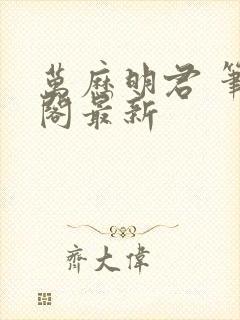 萬麻明君 筆
閣最新
齊大偉